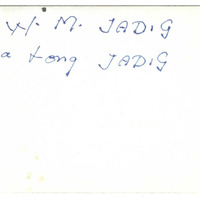 w/. M. JADIG
a tong JADIG